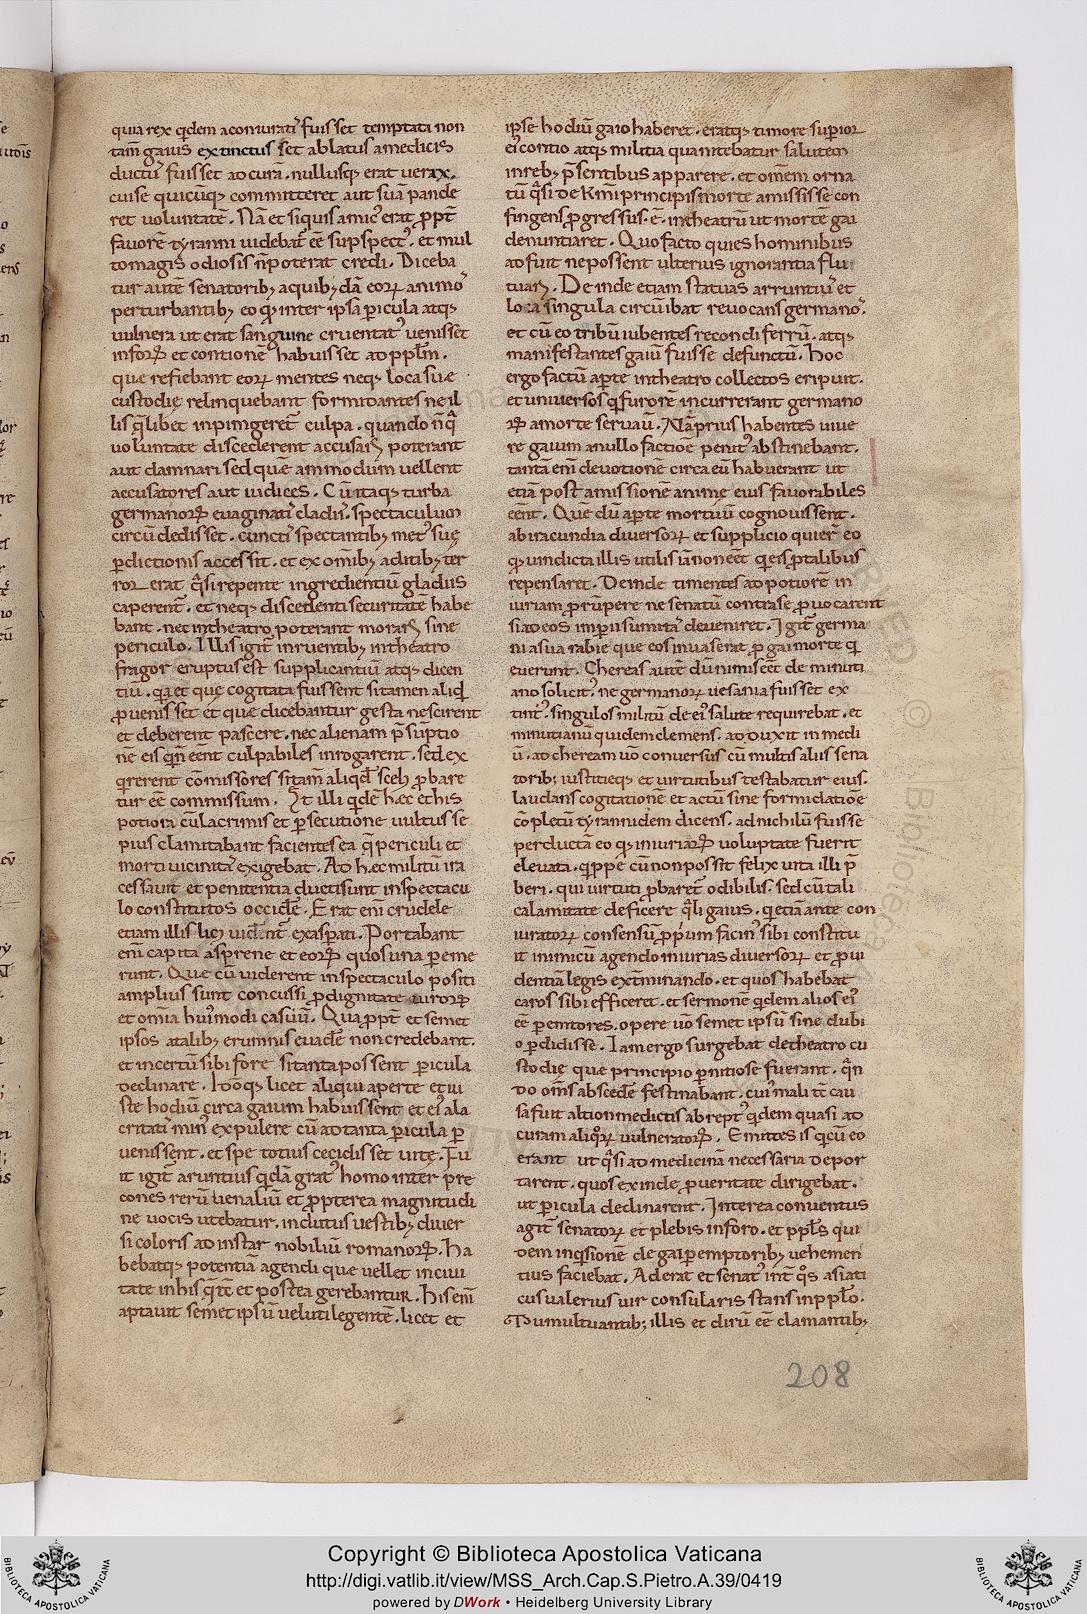 quia rex q̇dem aconiurati᷒ fuisset temptata non
tam̄ gaius extinctus set ablatus amedicis
ductu᷒ fuisset ad cura. nullusq; erat uerax.
cuise quicūq; committeret aut suā pande
ret uoluntatē. Nā et siquis amic᷒ erat ꝓpt̄
fauorē tyranni uidebat᷒ eē supspect᷒. et mul
tomagis odiosis n̄poterat credi. Diceba
tur autē senatorib; aquib;dā eoꝝ animo᷒
perturbantib; eo qđ inter ipsa ꝑicula atq;
uulnera ut erat sanguine cruentat᷒ uenisset
inforū et contionē habuisset ad pplm̄.
que refiebant eoꝝ mentes neq; loca sue
custodię relinquebant formidantes ne il
lis q̄libet inpingeret᷒ culpa. quando n̄q̇
uoluntate discederent accusari poterant
aut damnari sed que ammodum uellent
accusatores aut iudices. Cū itaq; turba
germanoꝝ euaginati᷒ cladii᷒. spectaculum
circū dedisset. cuncti᷒ spectantib; met᷒ suę
ꝑdictionis accessit. et ex omīb; aditib; ter
ror erat q̄si repente ingredientiū gladiis
caperent᷒. et neq; discedenti securitatē habe
bant. nec intheatro poterant morari sine
periculo. Illis igit᷒ irruentib; intheatro
fragor eruptus est supplicantiū atq; dicen
tiū. qa et que cogitata fuissent sitamen aliqd
ꝓuenisset et que dicebantur gesta nescirent
et deberent parcere. nec alienam p̄suptio
nē eis qn̄ eēnt culpabiles inrogarent. sed ex
q̇rerent cōmissores sitam̄ aliqd̄ sceł ꝓbare
tur eē commissum. Et illi q̇dē hęc et his
potiora cū lacrimis et ꝑsecutione uultus se
pius clamitabant facientes ea q̄ periculi et
morti uicinita᷒ exigebat. Ad hęc militū ira
cessauit et penitentia ducti sunt inspectacu
lo constitutos occidẽ. Erat enī crudele
etiam illis lic; uident᷒ exasperati. Portabant
enī capita asprene et eoꝝ quos una peremē
runt. Que cū uiderent inspectaculo positi
amplius sunt concussi ꝓdignitate uiroꝝ
et omia hui᷒modi casuū. Quapropt̄ et semet
ipsos atalib; erumnis euadẽ non credebant.
et incertū sibi fore sitanta possent ꝑicula
declinare. Idōq; licet aliqui aperte et iu
ste hodiū circa gaium habuissent et ei᷒ ala
critati min᷒ expulere cū ad tanta ꝑicula ꝑ
uenissent. et spe totius cecidisset uitę. Fu
it igit᷒ aruntius q̇dā grat᷒ homo inter pre
cones rerū uenaliū et ꝓpterea magnitudi
ne uocis utebatur. indutus uestib; diuer
si coloris ad instar nobiliū romanoꝝ. Ha
bebatq; potentiā agendi que uellet inciui
tate inhis q̄ tc̄ et postea gerebantur. Hisenī
aptauit semet ipsū ueluti legentē. licet et
ipse hodiū gaio haberet. eratq; timore superior
ei᷒ contio atq; militia qua nitebatur salutem
inreb; p̄sentibus apparere. et omēm orna
tū q̄si de kmi principis morte amississe con
fingens ꝓgressus. ē. intheatrū ut mortē gai
denuntiaret. Quo facto quies hominibus
ad fuit ne possent ulterius ignorantia flu
tuari. Deinde etiam statuas arruntiu᷒ et
loca singula circūibat reuocans germano᷒.
et cū eo tribu iubentes recondi ferrū. atq;
manifestantes gaiū fuisse defunctū. Hoc
ergo factū aperte intheatro collectos eripuit.
et uniuersos q̇ furore incurrerant germano
ꝝ amorte seruauit. Nā prius habentes uiue
re gaium anullo factiōē penit᷒ abstinebant.
tantā enī deuotionē circa eū habuerant ut
etiā post amissionē anime eius fauorabiles
eēnt. Quē dū aperte mortuū cognouissent.
abiracundia diuersoꝝ et supplicio quieř eo
qđ uindicta illis utilis iā non eēt qeis ꝑtalibus
repensaret. Deinde timentes ad potiore in
iuriam ꝓrūpere ne senatū contra se ꝓuocarent
si ad eos imperii sumita᷒ deueniret. Igit᷒ germa
ni a sua rabie que eos inuaserat ꝓ gai morte q̇
euerunt. Chereas autē dū nimis eēt de minuti
ano solicit᷒. ne germanoꝝ uesania fuisset ex
tint᷒. singulos militū de ei᷒ salute requirebat. et
minutianū quidem clemens. ad duxit in medi
ū. ad cheream uō conuersus cū multis aliis sena
torib; iustitieq; et uirtutibus testabatur eius.
laudans cogitationē et actū sine formidatiōe
cōpletū tyrannidem dicens. ad nichilū fuisse
perducta eo qđ iniuriaꝝ uoluptate fuerit
eleuata. q̇ppe cū non possit felix uita illi p̄
beri. qui uirtuti ꝓbaret᷒ odibilis. sed cū tali
calamitate deficere q̄li gaius. q etiā ante con
iuratoꝝ consensū ꝓp̄um facin᷒ sibi constitu
it inimicū agendo iniurias diuersoꝝ et ꝓui
dentiā legis ext̄minando. et quos habebat
caros sibi efficeret. et sermone q̇dem alios ei᷒
eē peremtores. opere uō semet ipsū sine dubi
o ꝑdidisse. Iam ergo surgebat detheatro cu
stodię que principio ꝑnitiose fuerant. q̄n
do omīs abscedẽ festinabant. cui᷒ mali tē cau
sā fuit altion medictis abrept᷒ q̇dem quasi ad
curam aliq̇oꝝ uulneratoꝝ. Emittes is q̇ cū eo
erant ut q̄si ad medicinā necessaria depor
tarent. quos exinde ꝓ ueritate dirigebat.
ut ꝑicula declinarent. Interea conuentus
agit᷒ senatoꝝ et plebis inforo. et ppłs qui
dem inq̇sitionē de gai ꝑemptorib; uehemen
tius faciebat. Aderat et senat᷒ int᷒ q̇s asiati
cus ualerius uir consularis stans in ppło.
Tumultuantib; illis et dirū eē clamantib;
208
Copyright © Biblioteca Apostolica Vaticana
http://digi.vatlib.it/view/MSS_Arch.Cap.S.Pietro.A.39/0419
powered by DWork • Heidelberg University Library
BIBLIOTECA APOSTOLICA VATICANA
BIBLIOTECA APOSTOLICA VATICANA